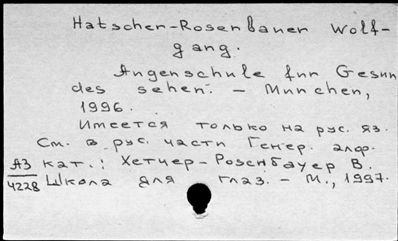 Hatscher-Rosenbauer Wolf-
gang.
Augenschule fur Gesun
des sehen. - Munchen,
1996.
Имеется только на рус. яз.
См. в рус. части Генер. алф.
АЗ кат.: Хетчер-Розенбауер В.
4228 Школа для глаз. - М., 1997.